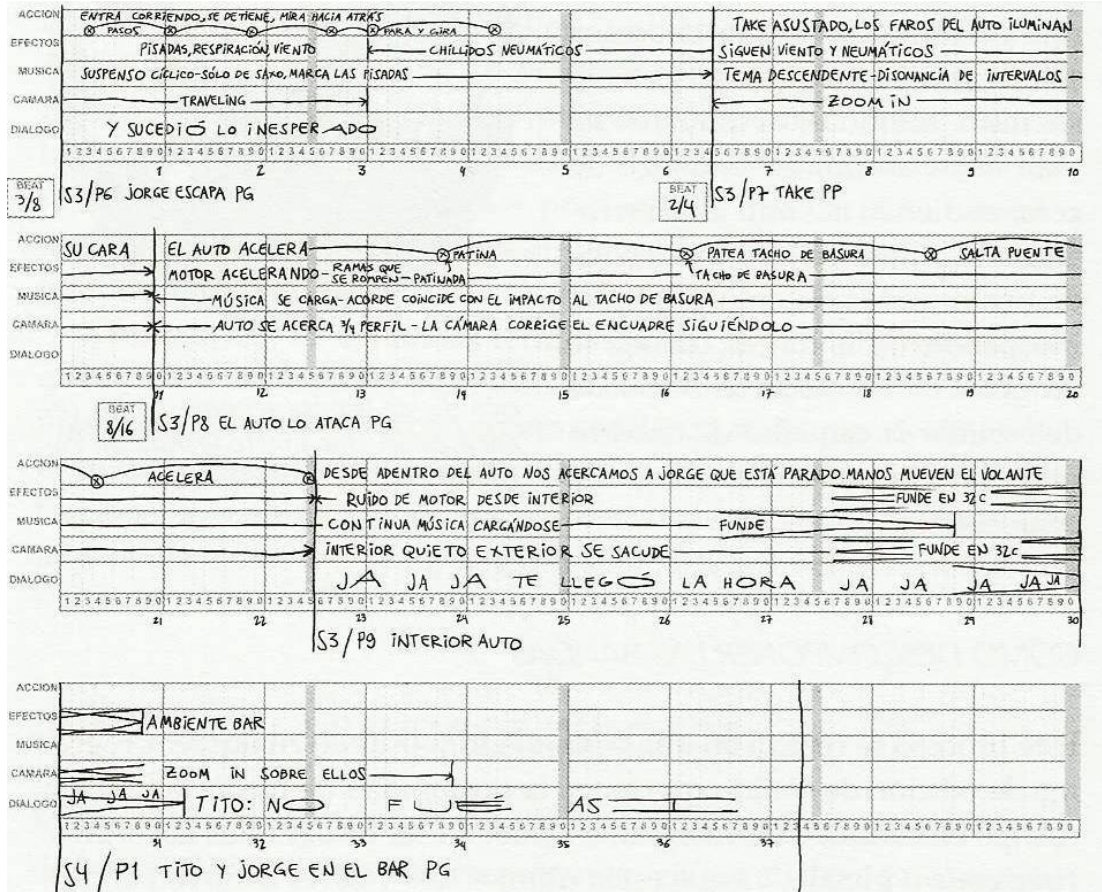 ACCION ENTRA CORRIENDO, SE DETIENE, MIRA HACIA ATRÁS TAKE ASUSTADO, LOS FAROS DEL AUTO ILUMINAN
PASOS PARA Y GIRA
EFECTOS PISADAS, RESPIRACIÓN VIENTO CHILLIDOS NEUMÁTICOS SIGUEN VIENTO Y NEUMÁTICOS
MUSICA SUSPENSO CÍCLICO-SÓLO DE SAXO, MARCA LAS PISADAS TEMA DESCENDENTE-DISONANCIA DE INTERVALOS
CAMARA TRAVELING ZOOM IN
DIALOGO Y SUCEDIÓ LO INESPERADO
1234567890 1234567890 1234567890 1234567890 1234567890 1234567890 1234567890 1234567890 1234567890 1234567890
1 2 3 4 5 6 7 8 9 10
BEAT 3/8 S3/P6 JORGE ESCAPA PG BEAT 2/4 S3/P7 TAKE PP
ACCION SU CARA EL AUTO ACELERA PATINA PATEA TACHO DE BASURA SALTA PUENTE
EFECTOS MOTOR ACELERANDO - RAMAS QUE SE ROMPEN - PATINADA TACHO DE BASURA
MUSICA MÚSICA SE CARGA - ACORDE COINCIDE CON EL IMPACTO AL TACHO DE BASURA
CAMARA AUTO SE ACERCA 3/4 PERFIL - LA CÁMARA CORRIGE EL ENCUADRE SIGUIÉNDOLO
DIALOGO
1234567890 1234567890 1234567890 1234567890 1234567890 1234567890 1234567890 1234567890 1234567890 1234567890
11 12 13 14 15 16 17 18 19 20
BEAT 8/16 S3/P8 EL AUTO LO ATACA PG
ACCION ACELERA DESDE ADENTRO DEL AUTO NOS ACERCAMOS A JORGE QUE ESTÁ PARADO. MANOS MUEVEN EL VOLANTE
EFECTOS RUIDO DE MOTOR DESDE INTERIOR FUNDE EN 32C
MUSICA CONTINUA MÚSICA CARGÁNDOSE FUNDE
CAMARA INTERIOR QUIETO EXTERIOR SE SACUDE FUNDE EN 32C
DIALOGO JA JA JA TE LLEGÓ LA HORA JA JA JA JA JA
1234567890 1234567890 1234567890 1234567890 1234567890 1234567890 1234567890 1234567890 1234567890 1234567890
21 22 23 24 25 26 27 28 29 30
S3/P9 INTERIOR AUTO
ACCION
EFECTOS AMBIENTE BAR
MUSICA
CAMARA ZOOM IN SOBRE ELLOS
DIALOGO JA JA JA TITO: NO FUÉ ASI
1234567890 1234567890 1234567890 1234567890 1234567890 1234567890 1234567890 1234567890 1234567890 1234567890
31 32 33 34 35 36 37
S4/P1 TITO Y JORGE EN EL BAR PG